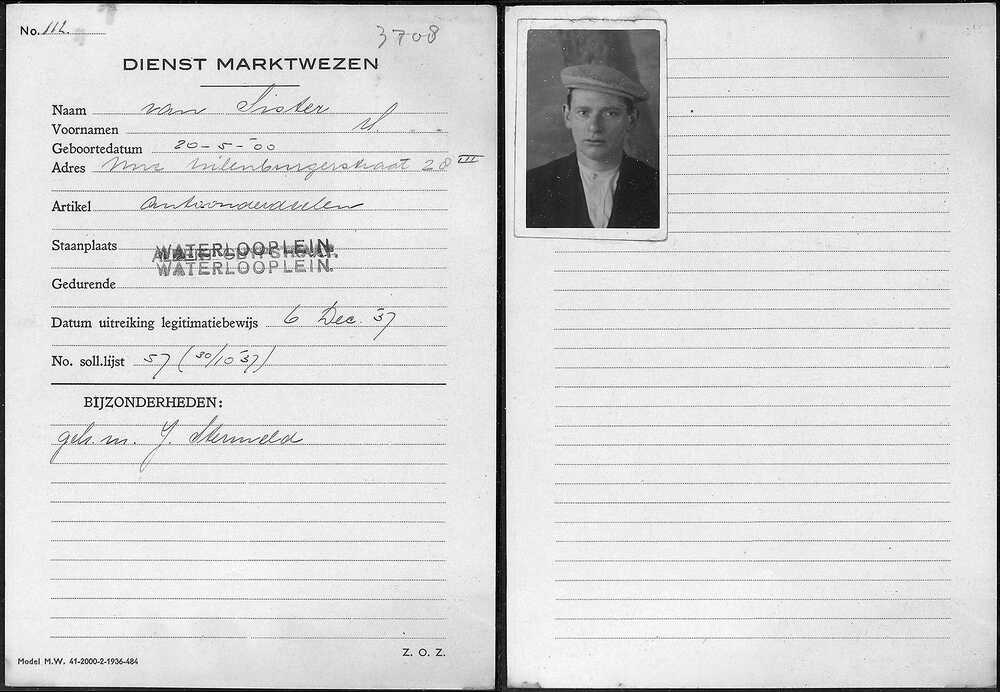 No. 112.
3708
DIENST MARKTWEZEN
Naam van Sister
Voornamen M.
Geboortedatum 20-5-'00
Adres Nwe Uilenburgerstraat 28 III
Artikel Autoonderdeelen
Staanplaats WATERLOOPLEIN.
WATERLOOPLEIN.
Gedurende
Datum uitreiking legitimatiebewijs 6 Dec. '37
No. soll.lijst 57 (30/10 '37)
BIJZONDERHEDEN:
geh. m. J.
Z. O. Z.
Model M.W. 41-2000-2-1936-484